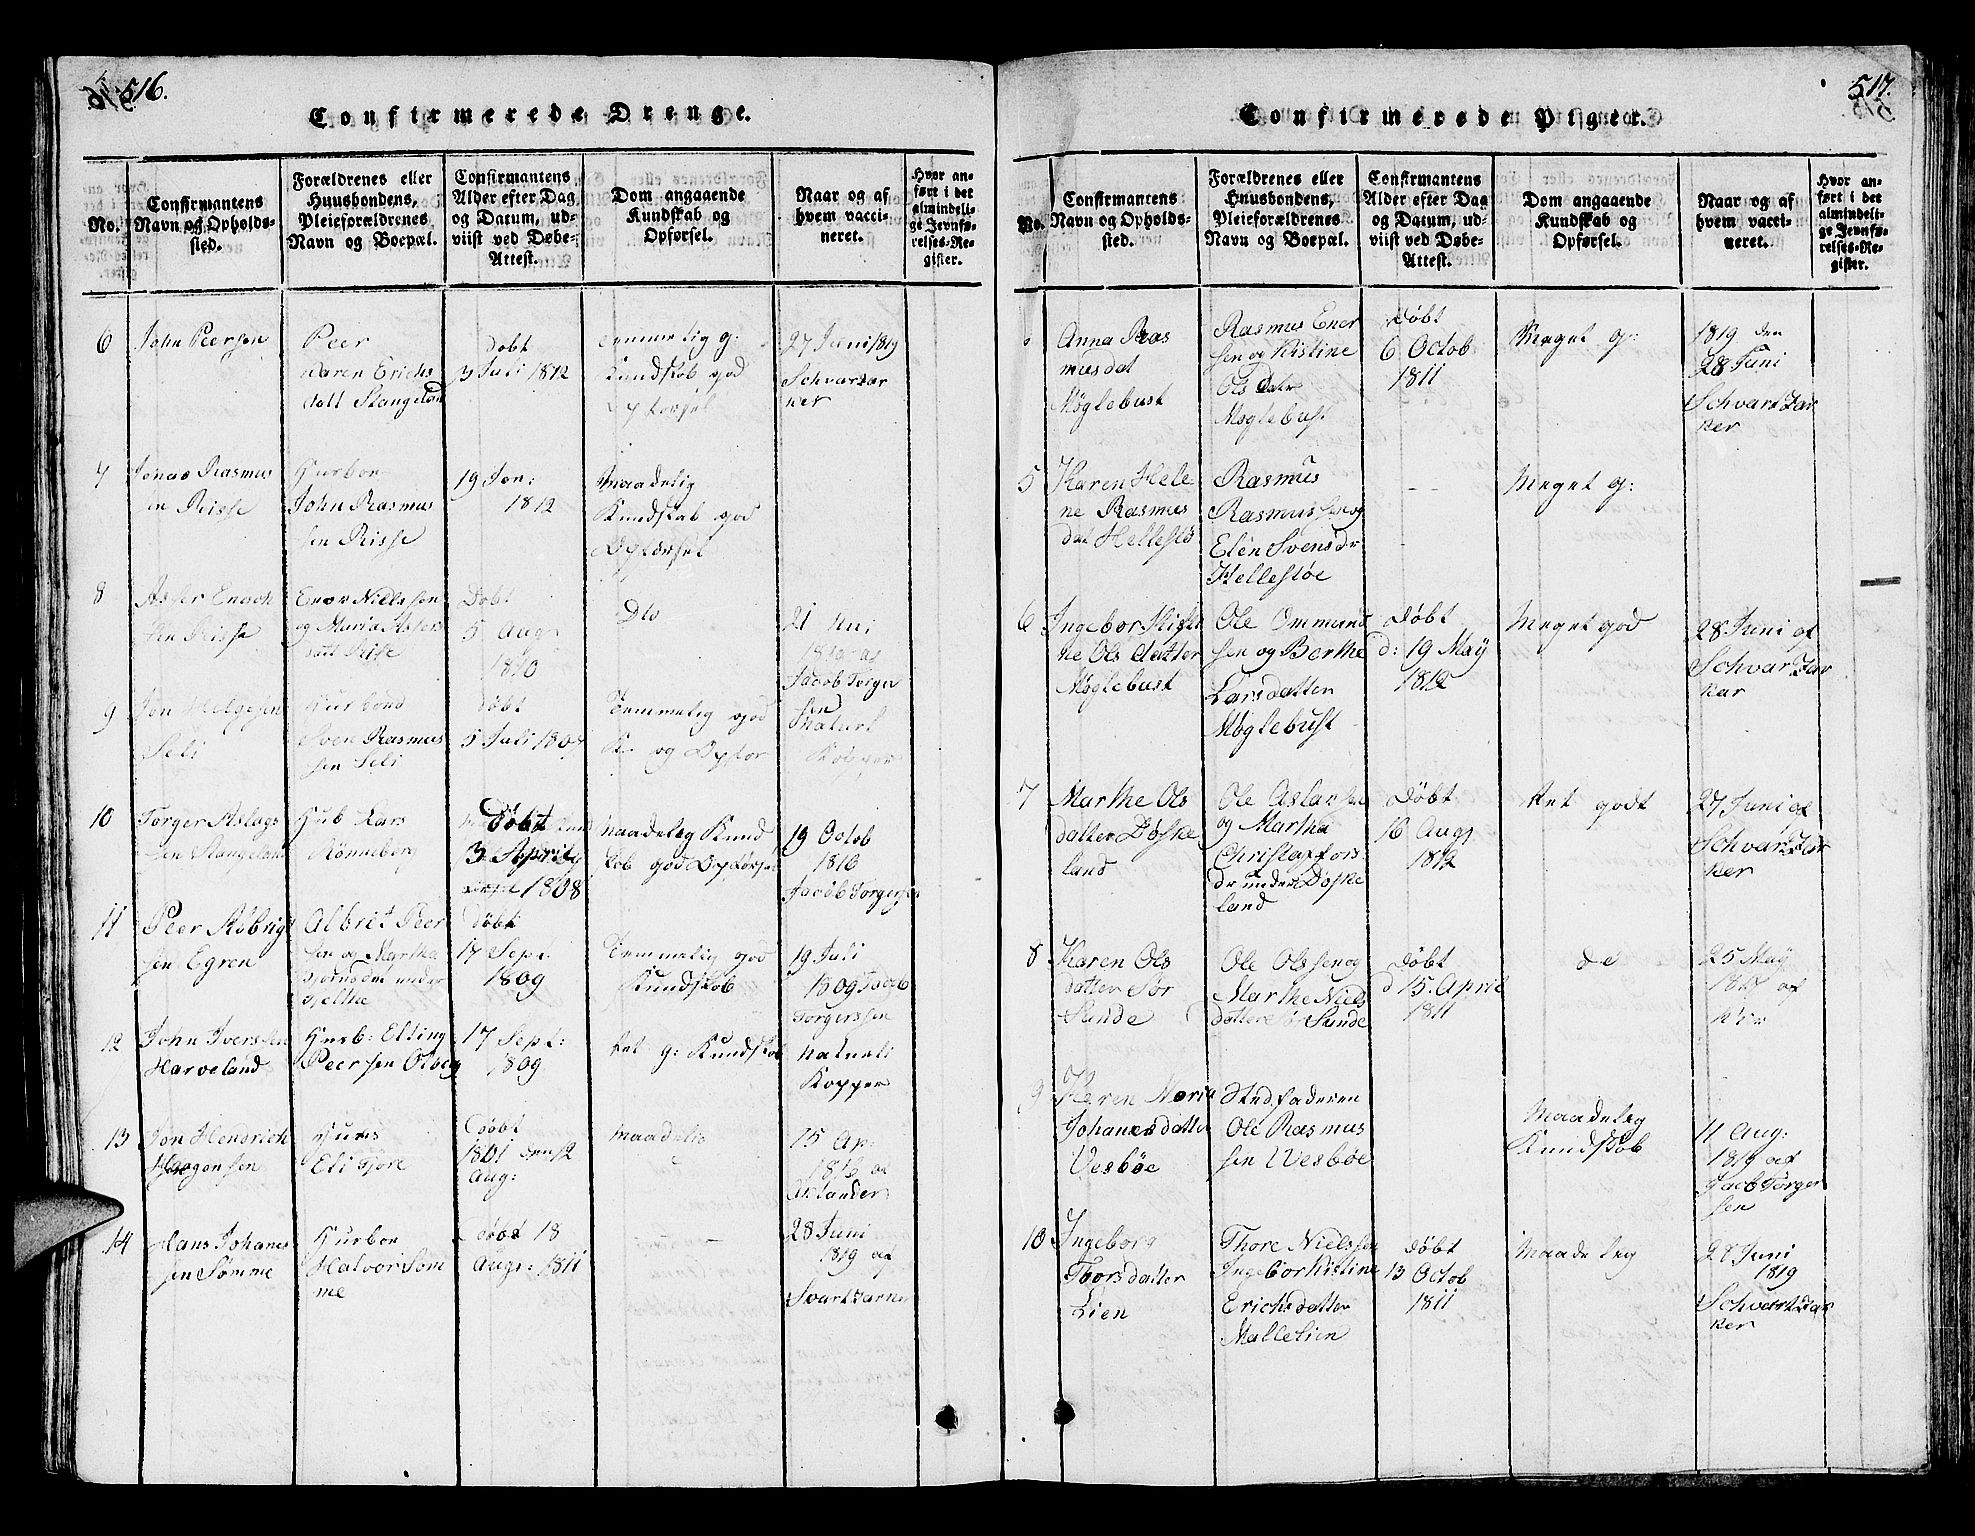 516.
Confirmerede Drenge.
No.
Confirmantens
Navn og Opholds-
sted.
Forældrenes eller
Huusbondens,
Pleieforældrenes
Navn og Boepæl.
Confirmantens
Alder efter Dag
og Datum, ud-
viist ved Døbe-
Attest.
Dom angaaende
Kundskab og
Opførsel.
Naar og af
hvem vacci-
neret.
Hvor an-
ført i det
almindeli-
ge Jevnfø-
relses-Re-
gister.
6
John Peersen
Peer
Karen Erichs
datt Stangeland
døbt
3 Juli 1812
temmelig g:
Kundskob god
Opførsel
27 Juni 1819
Schvardzar
ker
7
Jonas Rasmus
en Risse
Hurbon
John Rasmus
sen Risse
19 Jon:
1812
Maadelig
Kundskab god
Opførsel
8
Asser Enoch
sen Risse
Enov Nielssen
og Maria Assers
datt Risse
Døbt
5 Aug
1810
Dto
21
af
Jacob Torger
sen
9
Jon Helgesen
Seli
Hurbond
Sven Rasmus
sen Seli
døbt
5 Juli 1807
Temmelig god
K. og Opfør
Naturl
Kopper
10
Torger Aslags
sen Stangeland
Hub Lars
Rönneberg
Döbt
3 April
1808
Maadeleg Kund
skob god Opførsel
19 Octob
1810
Jacob Torgersen
11
Peer Albrigt
sen Egren
Albret Peer
sen og Martha
under
Tjelthe
Döbt
17 Sept.
1809
Temmelig god
Kundskob
19 Juli
1809 Jacob
Torgerssen
12
John Iverssen
Harveland
Husb: Elling
Peersen Olberg
17 Sept:
1809
Ret g: Kundskob
Naturli
Kopper
13
Jon Hendrich
Haagensen
Huus
Eli Tjøre
Døbt
1801 den 12
Aug:
Maadelig
15 Ap:
af
14
Hans Johanes
sen Sømme
Hurbon
Halvor Søm
me
Døbt 18
Augs: 1811
28 Juni
1819 af
Svartzarner
517.
Confirmerede Piger.
No.
Confirmantens
Navn og Opholds-
sted.
Forældrenes eller
Huusbondens,
Pleieforældrenes
Navn og Boepæl.
Confirmantens
Alder efter Dag
og Datum, ud-
viist ved Døbe-
Attest.
Dom angaaende
Kundskab og
Opførsel.
Naar og af
hvem vacci-
neret.
Hvor an-
ført i det
almindeli-
ge Jevnfø-
relses-Re-
gister.
Anna Ras
musdat
Møglebust
Rasmus Ener
sen og Kistine
Ols Datr
Møglebust
døbt
6 Octob
1811
Meget g:
1819 den
28 Juni
Schvartzar
ker
5
Karen Hele
ne Rasmus
dat Hellestö
Rasmus
Rasmussen og
Elen Svens dr
Hellestøe
— —
Meget g:
6
Ingebor Kist
ne Ols datter
Møglebust
Ole Ommund
sen og Berthe
Larsdatter
Møglebust
døbt
d: 19 May
1812
Meget god
28 Juni af
Schvartzar
kar
7
Marthe Ols
datter Døske
land
Ole Aslacsen
og Martha
Christoffors
dr under Døske
land
døbt
16 Augs
1812
Ret godt
27 Juni af
Schvartzar
ker
8
Karen Ols
datter Sør
Sunde
Ole Olssen og
Marthe Niels
datter Sør Sunde
döbt
d 15. April
1811
de
25 May
1817 af
9
Karen Maria
Johanesdatter
Vesbøe
Stedfaderen
Ole Rasmus
sen Wesbøe
Maadeleg
Kundskob
11 Aug:
1819 af
Jacb Torger
sen
10
Ingeborg
Thorsdatter
Lien
Thore Nielssen
Ingebor Kistine
Erichsdatter
Malletien
døbt
13 Octob
1811
Maadeleg
28 Juni
1819
Schvartzar
ker